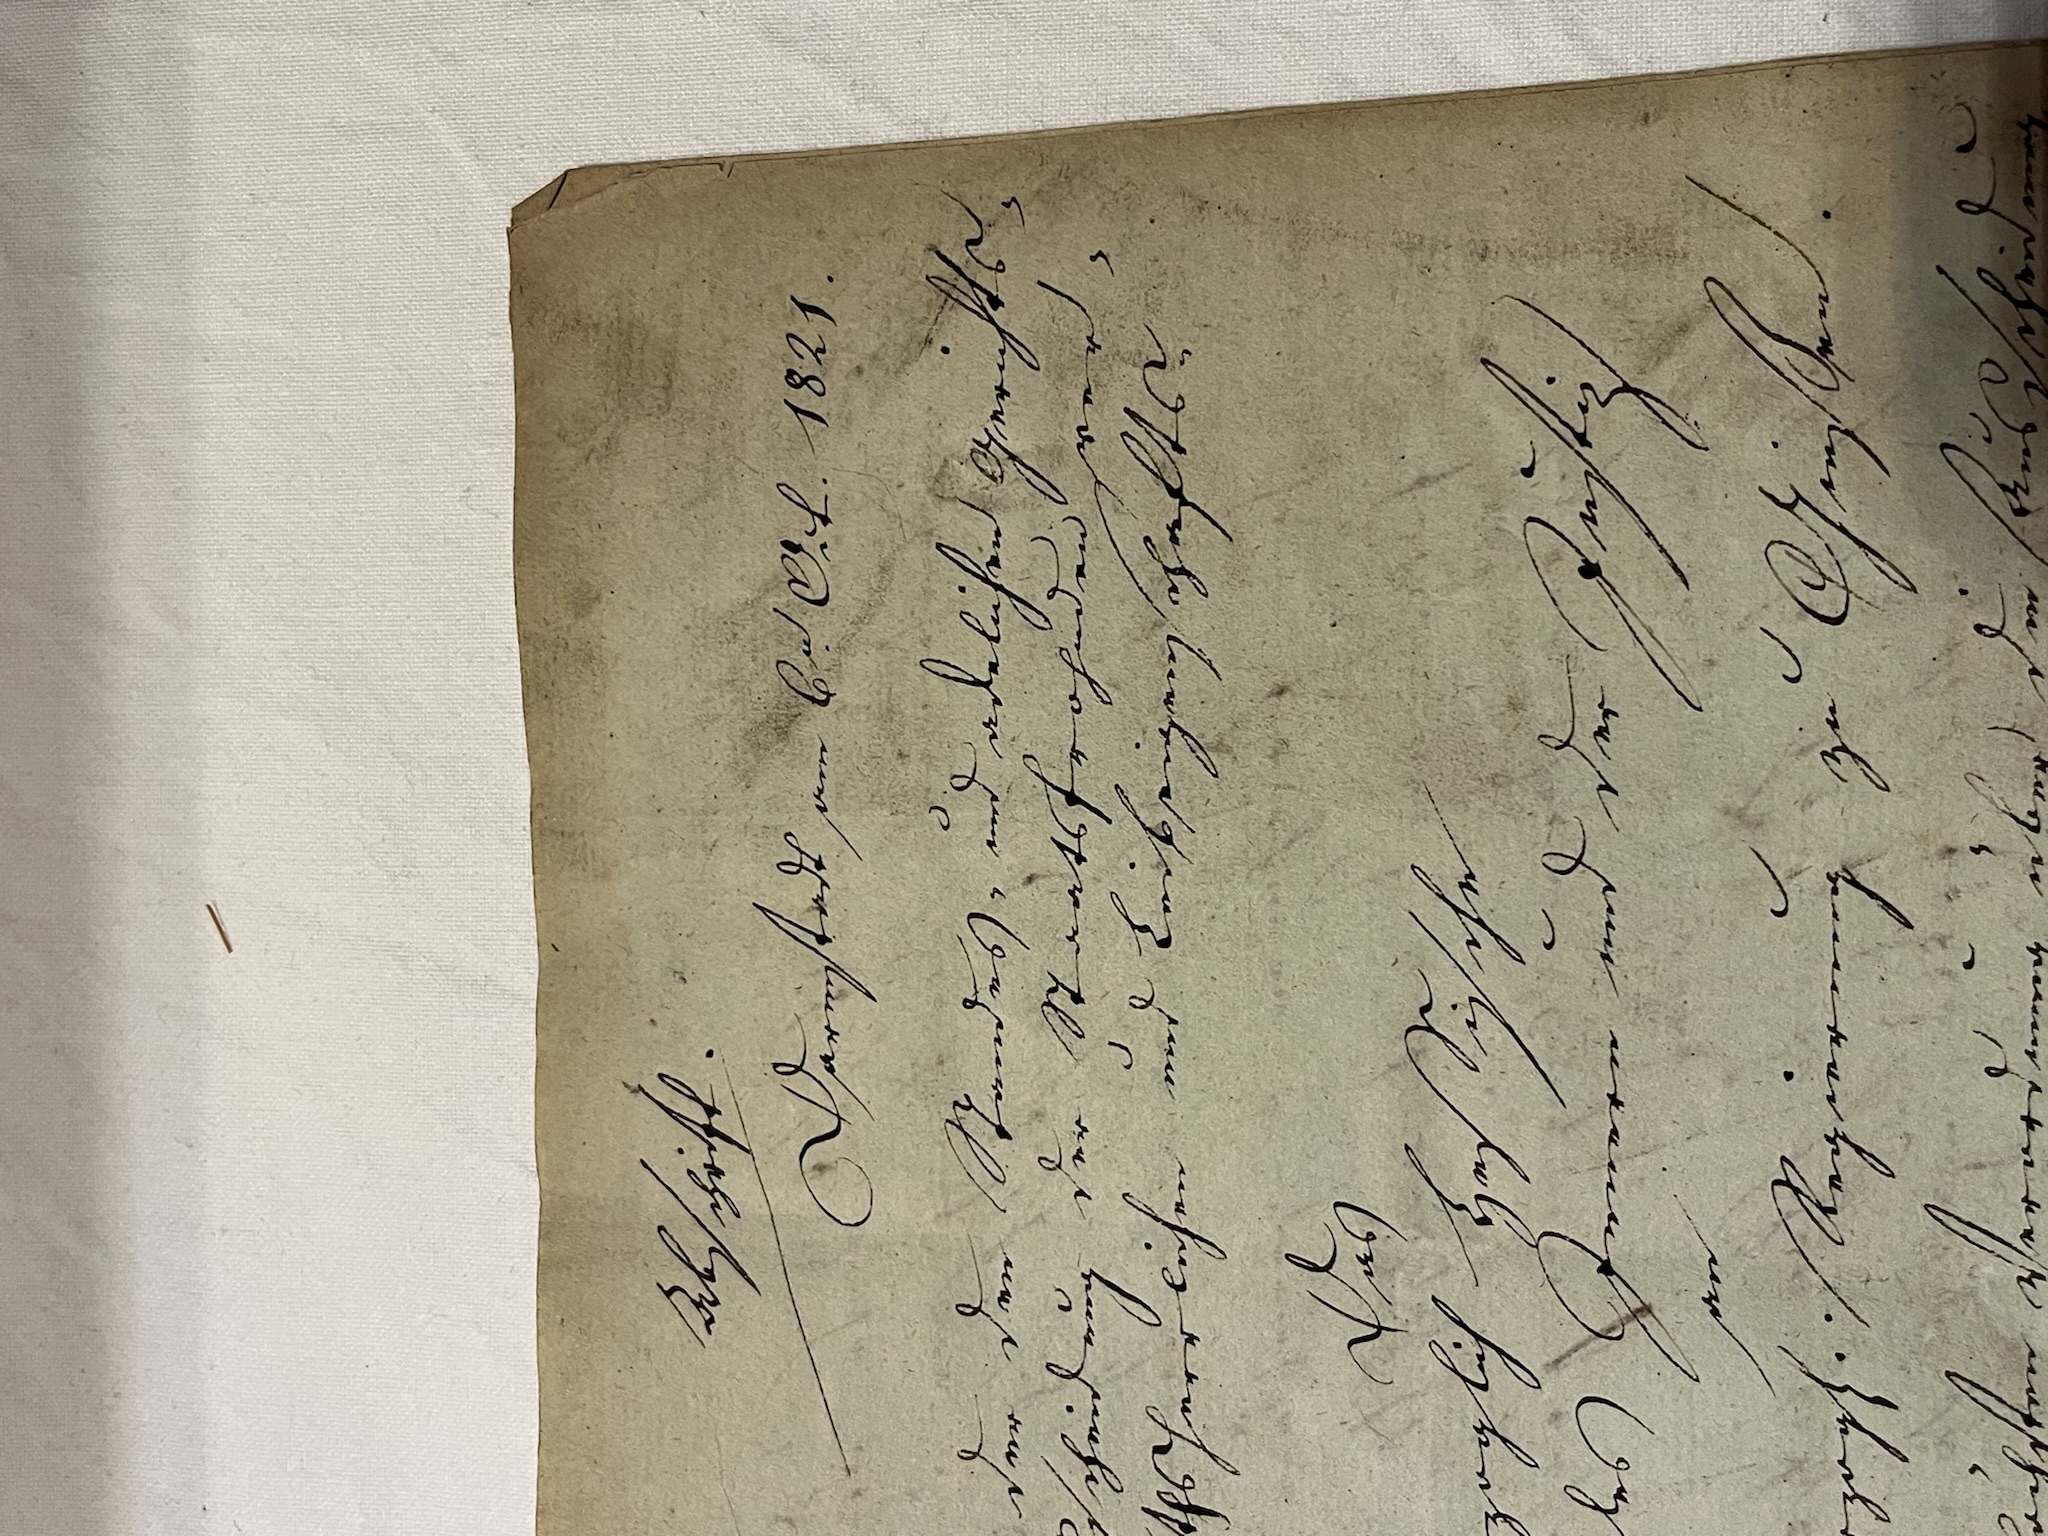 Abschrift.
Darmstadt am 6n. Oct. 1821.
der den Standes- und adelichen Gerichts-
scheidung der Staatsfrohnden ver-
thsherrlichen und Leibeigenschafts-
Das
zoglich Hessische
des Innern und der Justiz
an
rzogl. Regierung zu Giesßen.
öchsten Verordnung über die Ausscheidung